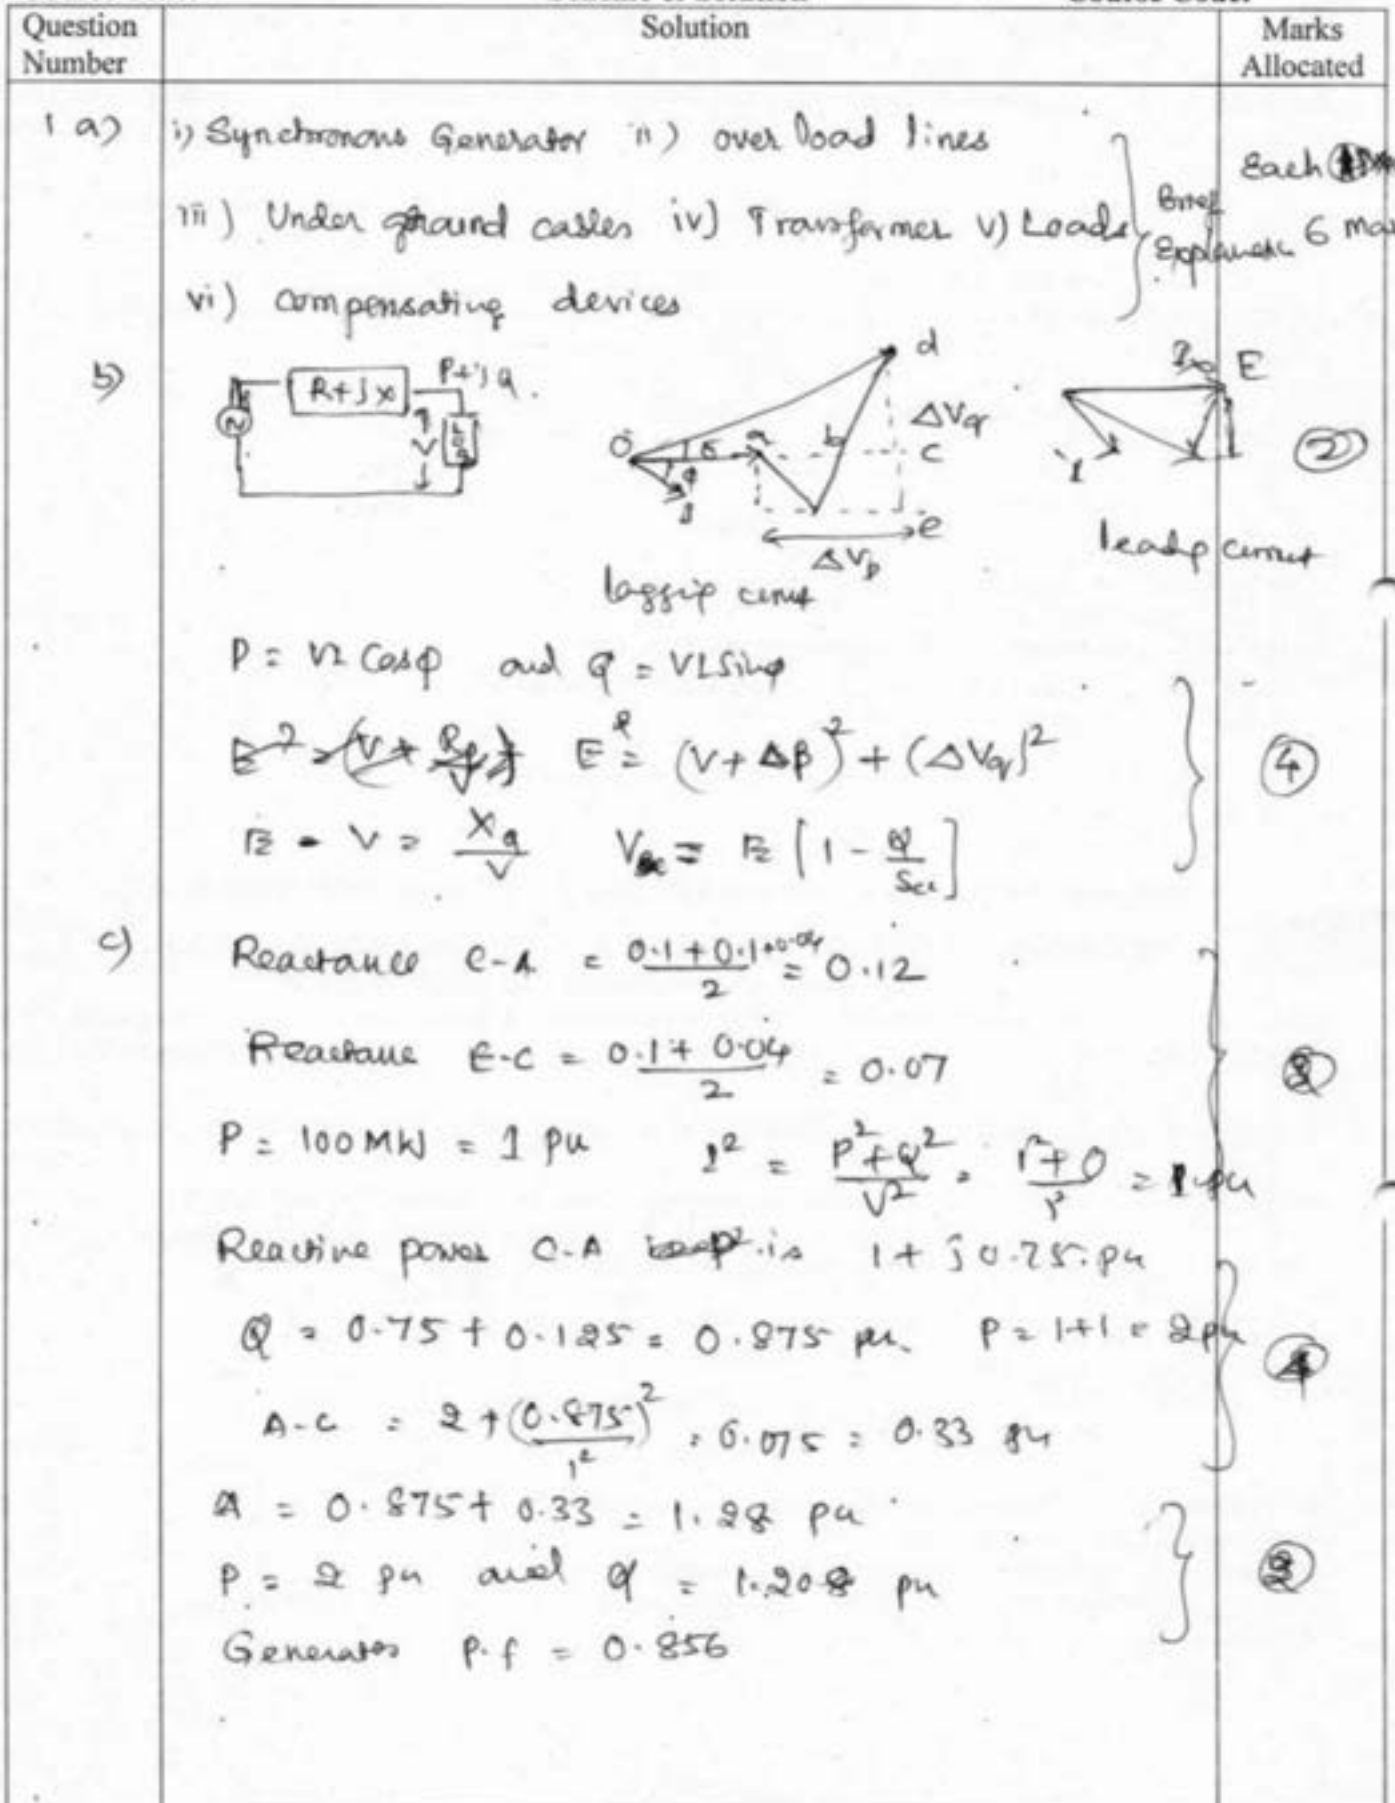 Question Number
Solution
Marks Allocated
1 a)
i) Synchronous Generator ii) over load lines
iii) Under ground cables iv) Transformer v) Loads
vi) compensating devices
Brief
Each
6
b)
R+jx
P+jQ
V
O
δ
φ
a
b
c
d
e
ΔVq
ΔVp
lagging
E
I
②
P = VI Cosφ and Q = VI Sinφ
E² = (V + Δp)² + (ΔVq)²
④
E - V = XQ/V V = E [1 - Q/Sca]
c)
Reactance C-A = 0.1+0.1+0.04/2 = 0.12
Reactance E-C = 0.1+ 0.04/2 = 0.07
P = 100 MW = 1 pu I² = P²+Q²/V² = 1²+0/1² = 1 pu
Reactive power C-A is 1 + j0.75 pu
Q = 0.75 + 0.125 = 0.875 pu. P = 1+1 = 2pu
④
A-C = 2 + (0.875)²/1² 0.075 = 0.33 pu
A = 0.875 + 0.33 = 1.28 pu
P = 2 pu and Q = 1.208 pu
②
Generator P.f = 0.856